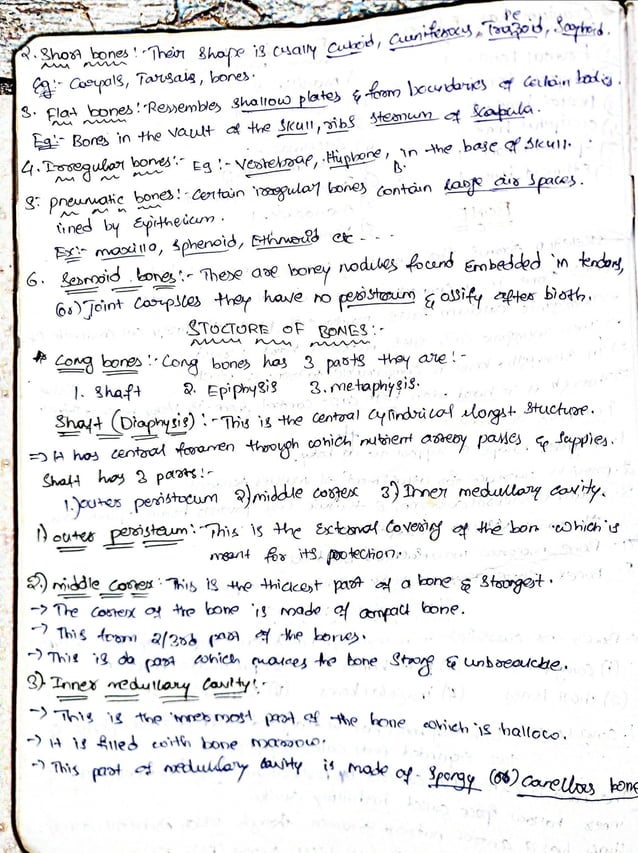 2. Short bones :- Their shape is cually cuboid, Cuniferocus, Trapezoid, Scaphoid.
Eg :- Carpals, Tarsals, bones.
3. Flat bones :- Ressembles shallow plates & from boundaries of certain bodies.
Eg :- Bones in the vault of the skull, ribs sternum of scapula.
4. Irregular bones :- Eg :- Vertebrae, Hipbone, in the base of skull.
5: pneumatic bones :- Certain irregular bones contain large air spaces.
lined by Epithelium.
Ex :- maxilla, sphenoid, Ethmoid etc - - -
6. Sesmoid bones :- These are boney nodules found Embedded in tendons,
(or) Joint Carpsles they have no peristeum & ossify after birth.
STUCTURE OF BONES :-
* Long bones :- Long bones has 3 parts they are :-
1. Shaft 2. Epiphysis 3. metaphysis.
Shaft (Diaphysis) :- This is the central cylindrical elongst Stucture.
⇒ It has central foramen through which nutrient artery passes & supplies.
Shaft has 3 parts :-
1.) outer peristocum 2) middle cortex 3) Inner medullary cavity.
1) outer peristeum :- This is the External covering of the bon which is
meant for its protection.
2.) middle cortex : This is the thickest part of a bone & strongest.
→ The cortex of the bone is made of compact bone.
→ This form 2/3rd part of the bones.
→ This is da part which makes the bone strong & unbreackble.
3) Inner medullary cavity :-
→ This is the inner most part of the bone which is hallow.
→ It is filled with bone marrow.
→ This part of medullary cavity is made of spongy (or) canellous bone